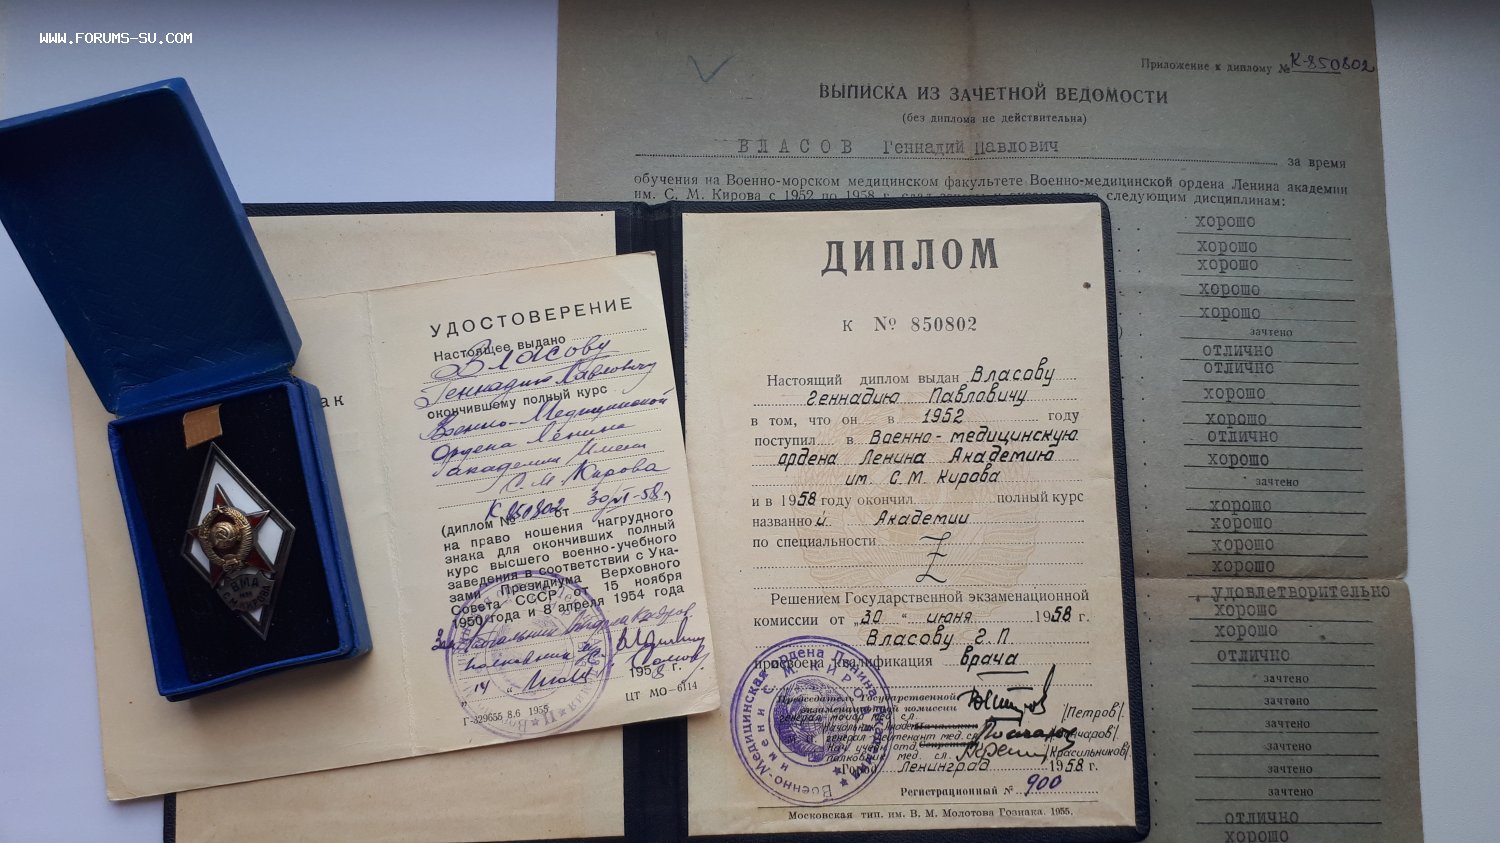 WWW.FORUMS-SU.COM
Приложение к диплому № К-850802
ВЫПИСКА ИЗ ЗАЧЕТНОЙ ВЕДОМОСТИ
(без диплома не действительна)
ВЛАСОВ Геннадий Павлович
за время
обучения на Военно-морском медицинском факультете Военно-медицинской ордена Ленина академии
им. С. М. Кирова с 1952 по 1958 г. следующим дисциплинам:
хорошо
хорошо
хорошо
хорошо
хорошо
зачтено
отлично
отлично
хорошо
хорошо
отлично
хорошо
зачтено
хорошо
хорошо
хорошо
хорошо
удовлетворительно
хорошо
хорошо
отлично
зачтено
зачтено
зачтено
зачтено
зачтено
зачтено
отлично
хорошо
ак
УДОСТОВЕРЕНИЕ
Настоящее выдано
Власову
Геннадию Павловичу
окончившему полный курс
Военно-Медицинской
Ордена Ленина
академии имени
С. М. Кирова
(диплом № К 850802 от 30/VI-58 г)
на право ношения нагрудного
знака для окончивших полный
курс высшего военно-учебного
заведения в соответствии с Ука-
зами Президиума Верховного
Совета СССР от 15 ноября
1950 года и 8 апреля 1954 года
Зам. Начальник отдела кадров
полковник
„14“ 1958 г.
ЦТ МО-6114
Г-329655 8.6 1955
ВМА
им
С.М. КИРОВА
ДИПЛОМ
К № 850802
Настоящий диплом выдан Власову
Геннадию Павловичу
в том, что он в 1952 году
поступил в Военно-медицинскую
ордена Ленина Академию
им. С.М. Кирова
и в 1958 году окончил полный курс
названной Академии
по специальности
Z
Решением Государственной экзаменационной
комиссии от „30“ июня 1958 г.
Власову Г.П.
присвоена квалификация врача
Председатель Государственной
экзаменационной комиссии
генерал-майор мед. сл. /Петров/.
Начальник Академии
генерал-лейтенант мед. сл. /Гончаров/
Нач. учебн. отд. Секретарь
полковник мед. сл. /Красильников/.
Город Ленинград 1958 г.
Регистрационный № 900
Московская тип. им. В. М. Молотова Гознака. 1955.
Военно-Медицинская ордена Ленина
имени С М КИРОВА